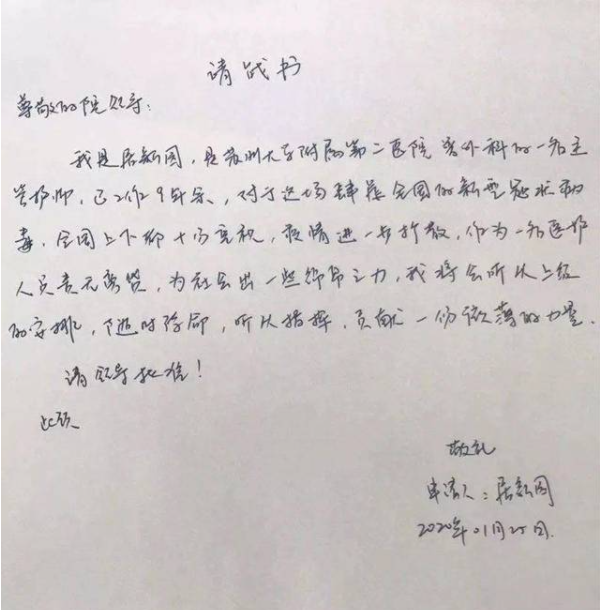 请战书
尊敬的院领导：
我是居新国，是苏州大学附属第二医院普外科的一名主
管护师，已工作9年余，对于这场肆虐全国的新型冠状病
毒，全国上下都十分重视，疫情进一步扩散，作为一名医护
人员责无旁贷，为社会出一些绵帛之力，我将会听从上级
的安排，随时待命，听从指挥，贡献一份微薄的力量。
请领导批准！
此致
敬礼
申请人：居新国
2020年01月25日.